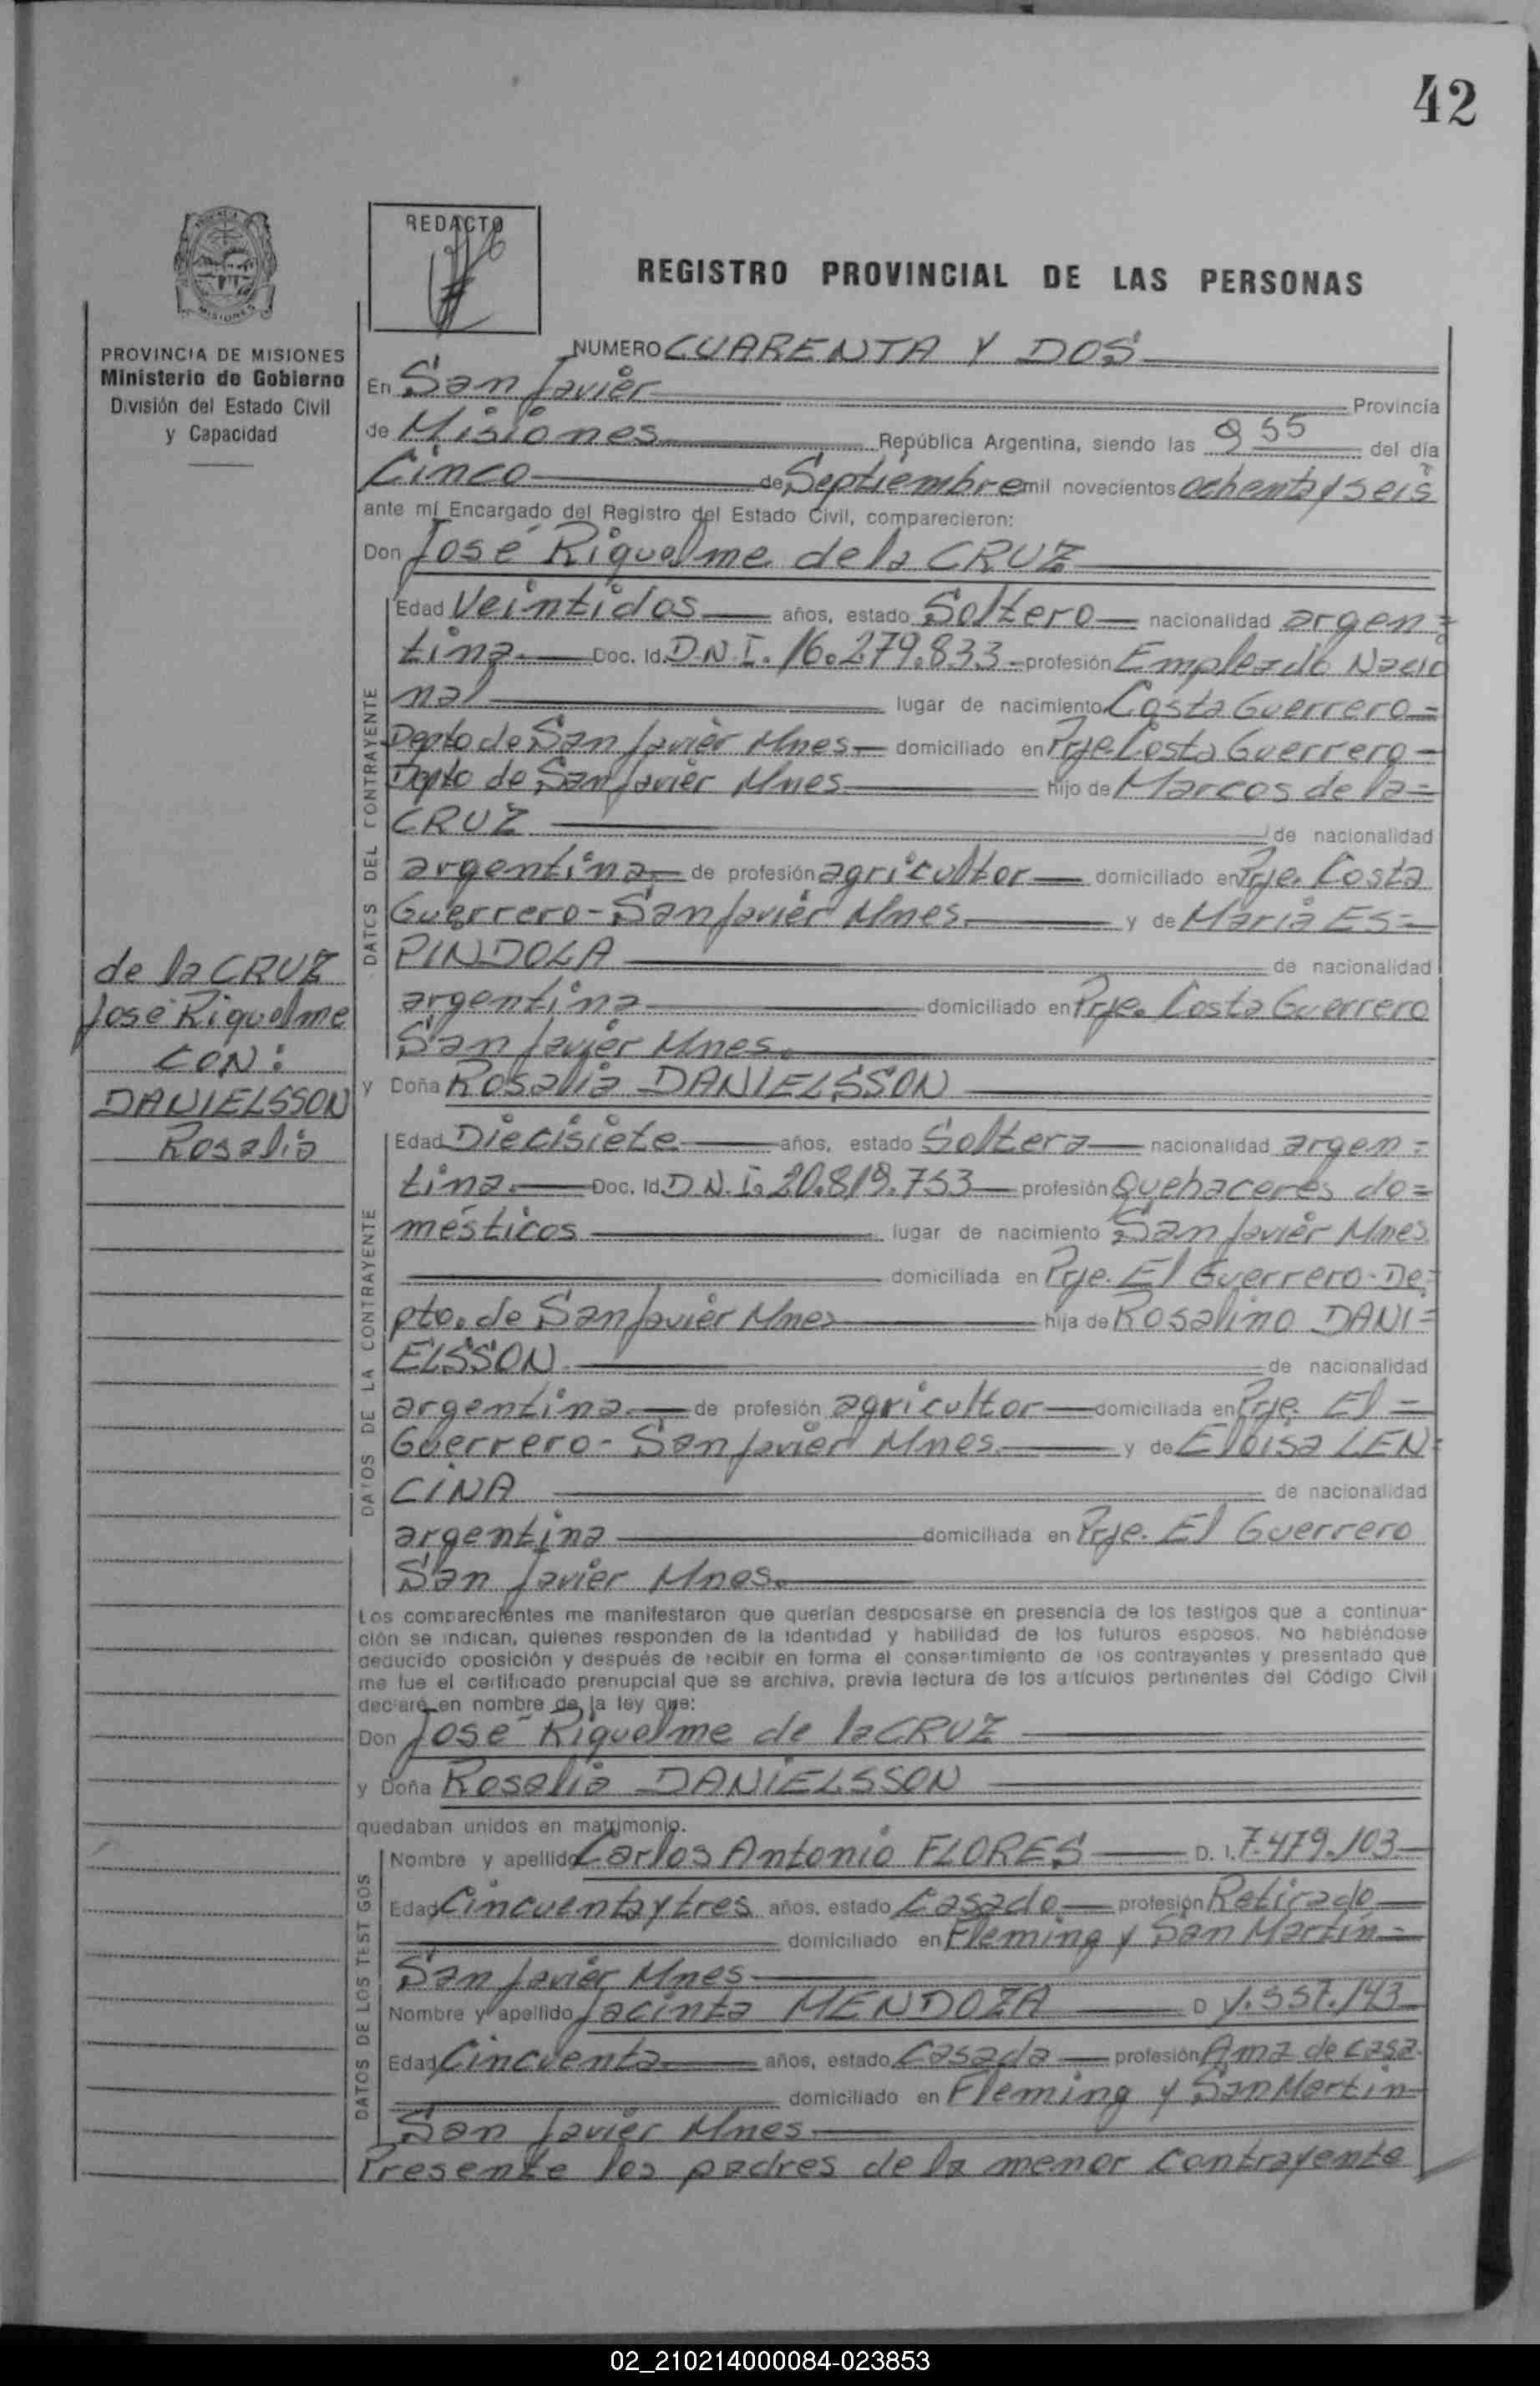 42
REDACTO
REGISTRO PROVINCIAL DE LAS PERSONAS
MISIONES
PROVINCIA DE MISIONES
Ministerio de Gobierno
División del Estado Civil
y Capacidad
NUMERO CUARENTA Y DOS
En San Javier Provincia
de Misiones República Argentina, siendo las 9 55 del día
Cinco de Septiembre mil novecientos ochenta y seis
ante mí Encargado del Registro del Estado Civil, comparecieron:
Don José Riquelme de la CRUZ
DATOS DEL CONTRAYENTE
Edad Veintidos años, estado Soltero nacionalidad argen=
tina. Doc. Id. D.N.I. 16.279.833 profesión Empleado Nacio
nal lugar de nacimiento Costa Guerrero=
Depto de San Javier Mnes domiciliado en Prje. Costa Guerrero
Depto de San Javier Mnes hijo de Marcos de la=
CRUZ de nacionalidad
argentina de profesión agricultor domiciliado en Prje. Costa
Guerrero-San Javier Mnes. y de María ES=
PINDOLA de nacionalidad
argentina domiciliado en Prje. Costa Guerrero
San Javier Mnes.
de la CRUZ
José Riquelme
CON:
DANIELSSON
Rosalia
y Doña Rosalia DANIELSSON
DATOS DE LA CONTRAYENTE
Edad Diecisiete años, estado Soltera nacionalidad argen=
tina. Doc. Id. D.N.I. 20.819.753 profesión Quehaceres do=
mésticos lugar de nacimiento San Javier Mnes.
domiciliada en Prje. El Guerrero-De=
pto. de San Javier Mnes hija de Rosalino DANI=
ELSSON de nacionalidad
argentina. de profesión agricultor domiciliada en Prje. El=
Guerrero-San Javier Mnes. y de Eloisa LEN=
CINA de nacionalidad
argentina domiciliada en Prje. El Guerrero
San Javier Mnes.
Los comparecientes me manifestaron que querían desposarse en presencia de los testigos que a continua-
ción se indican, quienes responden de la identidad y habilidad de los futuros esposos. No habiéndose
deducido oposición y después de recibir en forma el consentimiento de los contrayentes y presentado que
me fue el certificado prenupcial que se archiva, previa lectura de los artículos pertinentes del Código Civil
declaré en nombre de la ley que:
Don José Riquelme de la CRUZ
y Doña Rosalia DANIELSSON
quedaban unidos en matrimonio.
DATOS DE LOS TESTIGOS
Nombre y apellido Carlos Antonio FLORES D. I. 7.479.103
Edad Cincuenta y tres años, estado Casado profesión Retirado
domiciliado en Fleming y San Martín=
San Javier Mnes.
Nombre y apellido Jacinta MENDOZA D 1.557.143
Edad Cincuenta años, estado Casada profesión Ama de casa.
domiciliado en Fleming y San Martin
San Javier Mnes.
Presente los padres de la menor contrayente
02_210214000084-023853